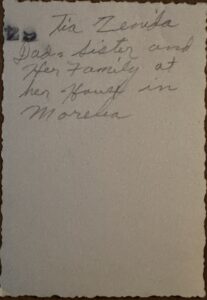 Tia Zenida
Dad's Sister and
Her Family at
her House in
Morelia